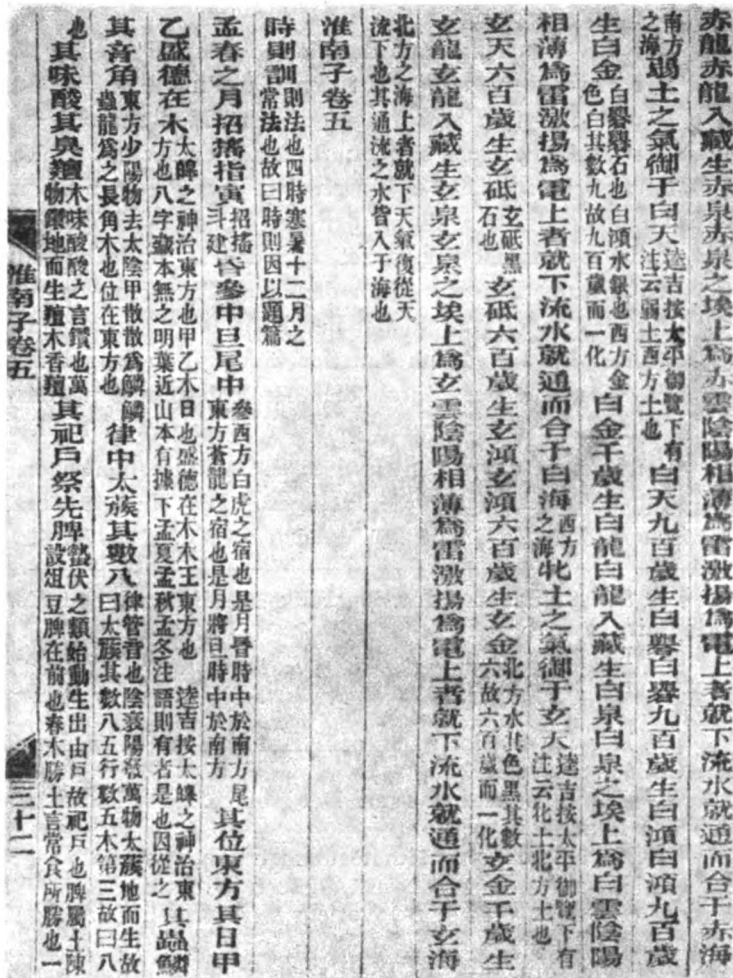 赤龍赤龍入藏生赤泉赤泉之埃上爲赤雲陰陽相薄爲雷激揚爲電上者就下流水就通而合于赤海
南方之海弱土之氣御于白天逵吉按太平御覽下有注云弱土西方土也白天九百歲生白礜白礜九百歲生白澒白澒九百歲
生白金白礜礜石也白澒水銀也西方金色白其數九故九百歲而一化白金千歲生白龍白龍入藏生白泉白泉之埃上爲白雲陰陽
相薄爲雷激揚爲電上者就下流水就通而合于白海西方之海牝土之氣御于玄天逵吉按太平御覽下有注云牝土北方土也
玄天六百歲生玄砥玄砥黑石也玄砥六百歲生玄澒玄澒六百歲生玄金北方水其色黑其數六故六百歲而一化玄金千歲生
玄龍玄龍入藏生玄泉玄泉之埃上爲玄雲陰陽相薄爲雷激揚爲電上者就下流水就通而合于玄海
北方之海上者就下天氣復從天流下也其通流之水皆入于海也
淮南子卷五
時則訓則法也四時寒暑十二月之常法也故曰時則因以題篇
孟春之月招搖指寅招搖斗建昏參中旦尾中參西方白虎之宿也是月昏時中於南方尾東方蒼龍之宿也是月將旦時中於南方其位東方其日甲
乙盛德在木太皞之神治東方也甲乙木日也盛德在木木王東方也逵吉按太皞之神治東方也八字藏本無之明葉近山本有據下孟夏孟秋孟冬注語則有者是也因從之其蟲鱗
其音角東方少陽物去太陰甲散散爲鱗鱗蟲龍爲之長角木也位在東方也律中太蔟其數八律管音也陰衰陽發萬物太蔟地而生故曰太蔟其數八五行數五木第三故曰八
也其味酸其臭羶木味酸酸之言鑽也萬物鑽地而生羶木香羶其祀戶祭先脾蟄伏之類始動生出由戶故祀戶也脾屬土陳設俎豆脾在前也春木勝土言常食所勝也一
淮南子卷五
三十二